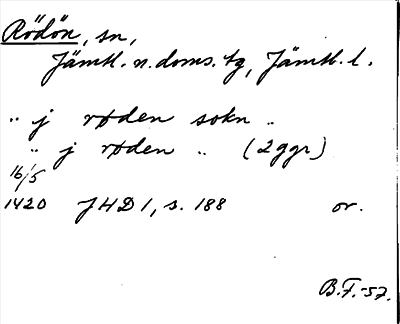 Rödön, sn,
Jämtl. n. doms. tg, Jämtl. l.
.. j røden sokn ..
.. j røden .. (2 ggr)
16/5
1420 JHD 1, s. 188 or.
B.F.-57.